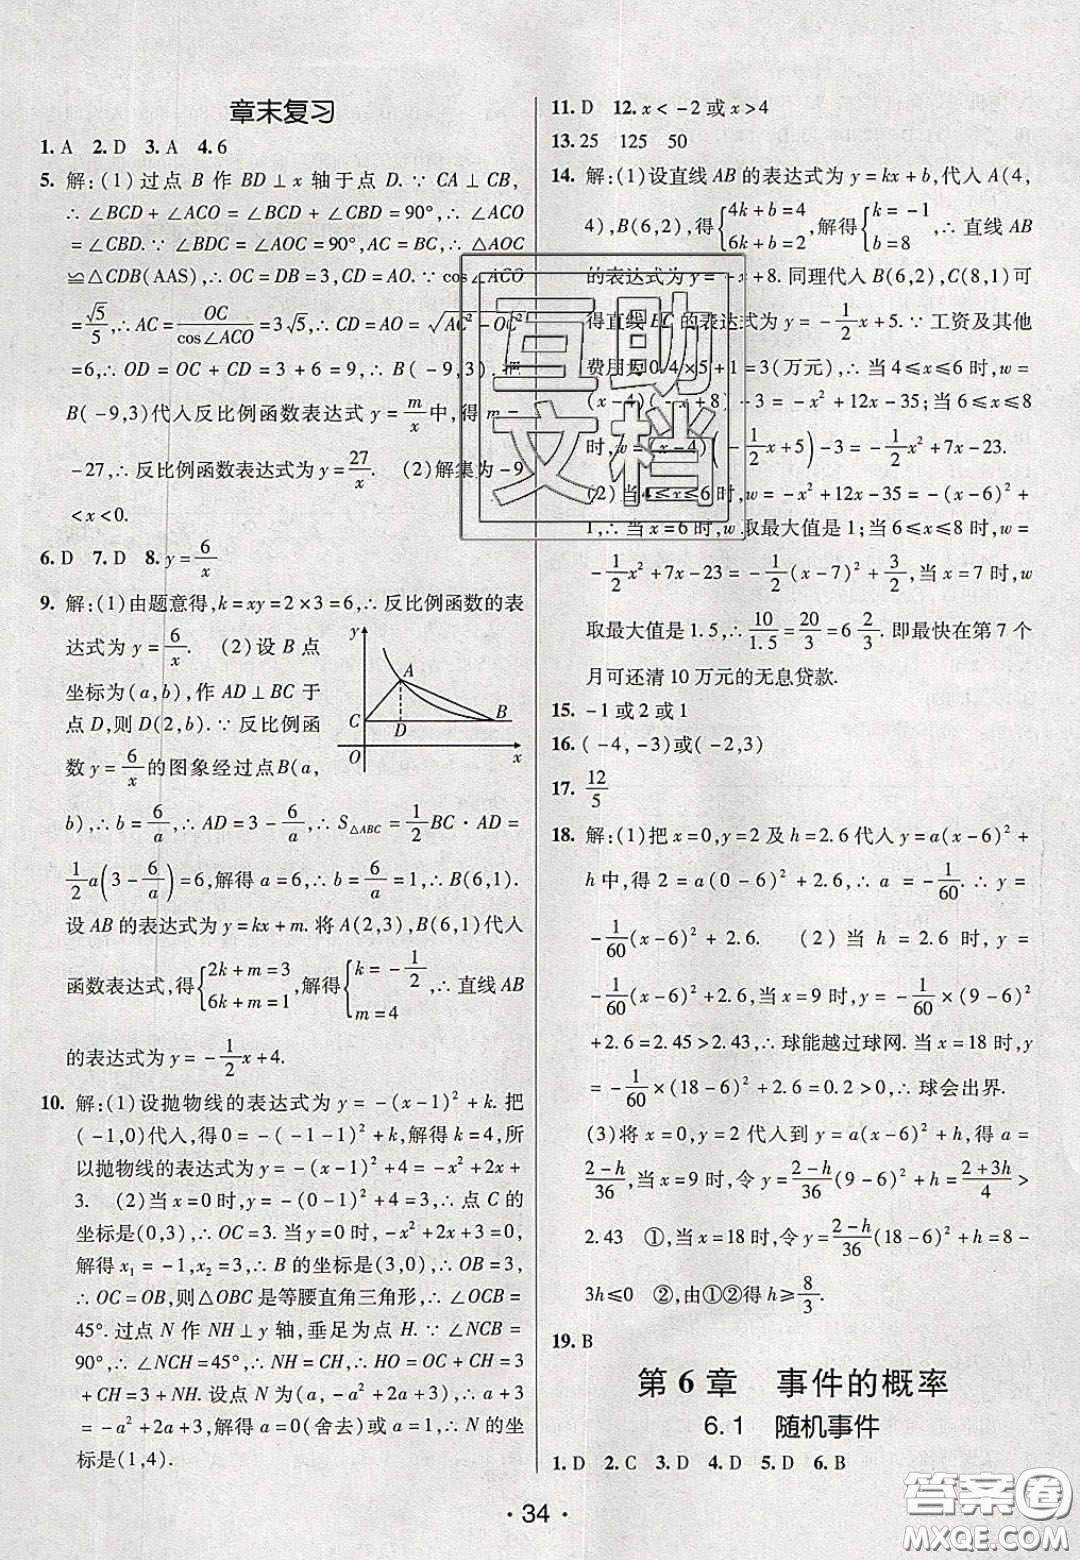 章末复习
1. A 2. D 3. A 4. 6
5. 解:(1)过点 B 作 BD⊥x 轴于点 D.∵CA⊥CB,
∴∠BCD+∠ACO=∠BCD+∠CBD=90°,∴∠ACO
=∠CBD.∵∠BDC=∠AOC=90°,AC=BC,∴△AOC
≌△CDB(AAS),∴OC=DB=3,CD=AO.∵cos∠ACO
=√5/5,∴AC=OC/cos∠ACO=3√5,∴CD=AO=√(AC²-OC²)
=6,∴OD=OC+CD=3+6=9,∴B(-9,3).把
B(-9,3)代入反比例函数表达式 y=m/x中,得 m=
-27,∴反比例函数表达式为 y=27/x. (2)解集为-9
<x<0.
6. D 7. D 8. y=6/x
9. 解:(1)由题意得,k=xy=2×3=6,∴反比例函数的表
达式为 y=6/x. (2)设 B 点
坐标为(a,b),作 AD⊥BC 于
点 D,则 D(2,b).∵反比例函
数 y=6/x的图象经过点 B(a,
b),∴b=6/a,∴AD=3-6/a,∴S△ABC=1/2BC·AD=
1/2a(3-6/a)=6,解得 a=6,∴b=6/a=1,∴B(6,1).
设 AB 的表达式为 y=kx+m.将 A(2,3),B(6,1)代入
函数表达式,得{2k+m=3 6k+m=1,解得{k=-1/2 m=4,∴直线 AB
的表达式为 y=-1/2x+4.
y
A
C
D
B
O
x
10. 解:(1)设抛物线的表达式为 y=-(x-1)²+k.把
(-1,0)代入,得0=-(-1-1)²+k,解得 k=4,所
以抛物线的表达式为 y=-(x-1)²+4=-x²+2x+
3. (2)当 x=0 时,y=-(0-1)²+4=3,∴点 C 的
坐标是(0,3),∴OC=3.当 y=0 时,-x²+2x+3=0,
解得 x₁=-1,x₂=3,∴B 的坐标是(3,0),∴OB=3,
∴OC=OB,则△OBC 是等腰直角三角形,∴∠OCB=
45°.过点 N 作 NH⊥y 轴,垂足为点 H.∵∠NCB=
90°,∴∠NCH=45°,∴NH=CH,∴HO=OC+CH=3
+CH=3+NH.设点 N 为(a,-a²+2a+3),∴a+3
=-a²+2a+3,解得 a=0(舍去)或 a=1,∴N 的坐
标是(1,4).
11. D 12. x<-2 或 x>4
13. 25 125 50
14. 解:(1)设直线 AB 的表达式为 y=kx+b,代入 A(4,
4),B(6,2),得{4k+b=4 6k+b=2,解得{k=-1 b=8,∴直线 AB
的表达式为 y=-x+8.同理代入 B(6,2),C(8,1)可
得直线 BC 的表达式为 y=-1/2x+5.∵工资及其他
费用为0.4×5+1=3(万元),∴当 4≤x≤6 时,w=
(x-4)(-x+8)-3=-x²+12x-35;当 6≤x≤8
时,w=(x-4)(-1/2x+5)-3=-1/2x²+7x-23.
(2)当 4≤x≤6 时,w=-x²+12x-35=-(x-6)²+
1,∴当 x=6 时,w 取最大值是 1;当 6≤x≤8 时,w=
-1/2x²+7x-23=-1/2(x-7)²+3/2,当 x=7 时,w
取最大值是 1.5,∴10/1.5=20/3=6 2/3.即最快在第 7 个
月可还清 10 万元的无息贷款.
15. -1 或 2 或 1
16. (-4,-3)或(-2,3)
17. 12/5
18. 解:(1)把 x=0,y=2 及 h=2.6代入 y=a(x-6)²+
h 中,得 2=a(0-6)²+2.6,∴a=-1/60.∴y=
-1/60(x-6)²+2.6. (2)当 h=2.6 时,y=
-1/60(x-6)²+2.6,当 x=9 时,y=-1/60×(9-6)²
+2.6=2.45>2.43,∴球能越过球网.当 x=18 时,y
=-1/60×(18-6)²+2.6=0.2>0,∴球会出界.
(3)将 x=0,y=2 代入到 y=a(x-6)²+h,得 a=
2-h/36,当 x=9 时,令 y=2-h/36(9-6)²+h=2+3h/4>
2.43 ①,当 x=18 时,令 y=2-h/36(18-6)²+h=8-
3h≤0 ②,由①②得 h≥8/3.
19. B
第 6 章 事件的概率
6.1 随机事件
1. D 2. C 3. D 4. D 5. D 6. B
· 34 ·
互助
文档
答案圈
MXQE.COM